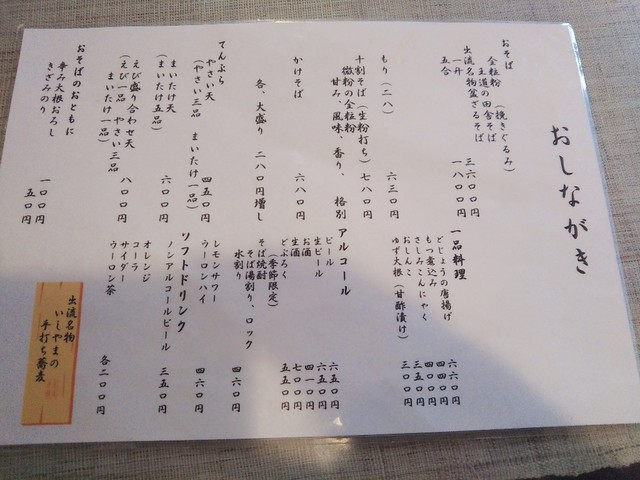 おしながき
おそば
全粒粉 (挽きぐるみ)
王道の田舎そば
出流名物盆ざるそば
一升 三六〇〇円
五合 一八〇〇円
もり (二八) 六三〇円
十割そば (生粉打ち) 七八〇円
微粉の全粒粉
甘み、風味、香り、 格別
かけそば 六八〇円
各、大盛り 二八〇円増し
てんぷら
やさい天 四五〇円
(やさい三品 まいたけ一品)
まいたけ天 六〇〇円
(まいたけ五品)
えび盛り合わせ天 八〇〇円
(えび一品 やさい三品
まいたけ一品)
おそばのおともに
辛み大根おろし 一〇〇円
きざみのり 五〇円
一品料理
どじょうの唐揚げ 六六〇円
もつ煮込み 四四〇円
さしみこんにゃく 四〇〇円
おしんこ 三五〇円
ゆず大根 (甘酢漬け) 三〇〇円
アルコール
ビール 六五〇円
生ビール 六五〇円
お酒 四一〇円
生酒 七〇〇円
どぶろく 五五〇円
(季節限定)
そば焼酎
そば湯割り、ロック
水割り 四六〇円
レモンサワー
ウーロンハイ 四六〇円
ソフトドリンク
ノンアルコールビール 三五〇円
オレンジ
コーラ
サイダー
ウーロン茶 各二〇〇円
出流名物
いしやまの
手打ち蕎麦